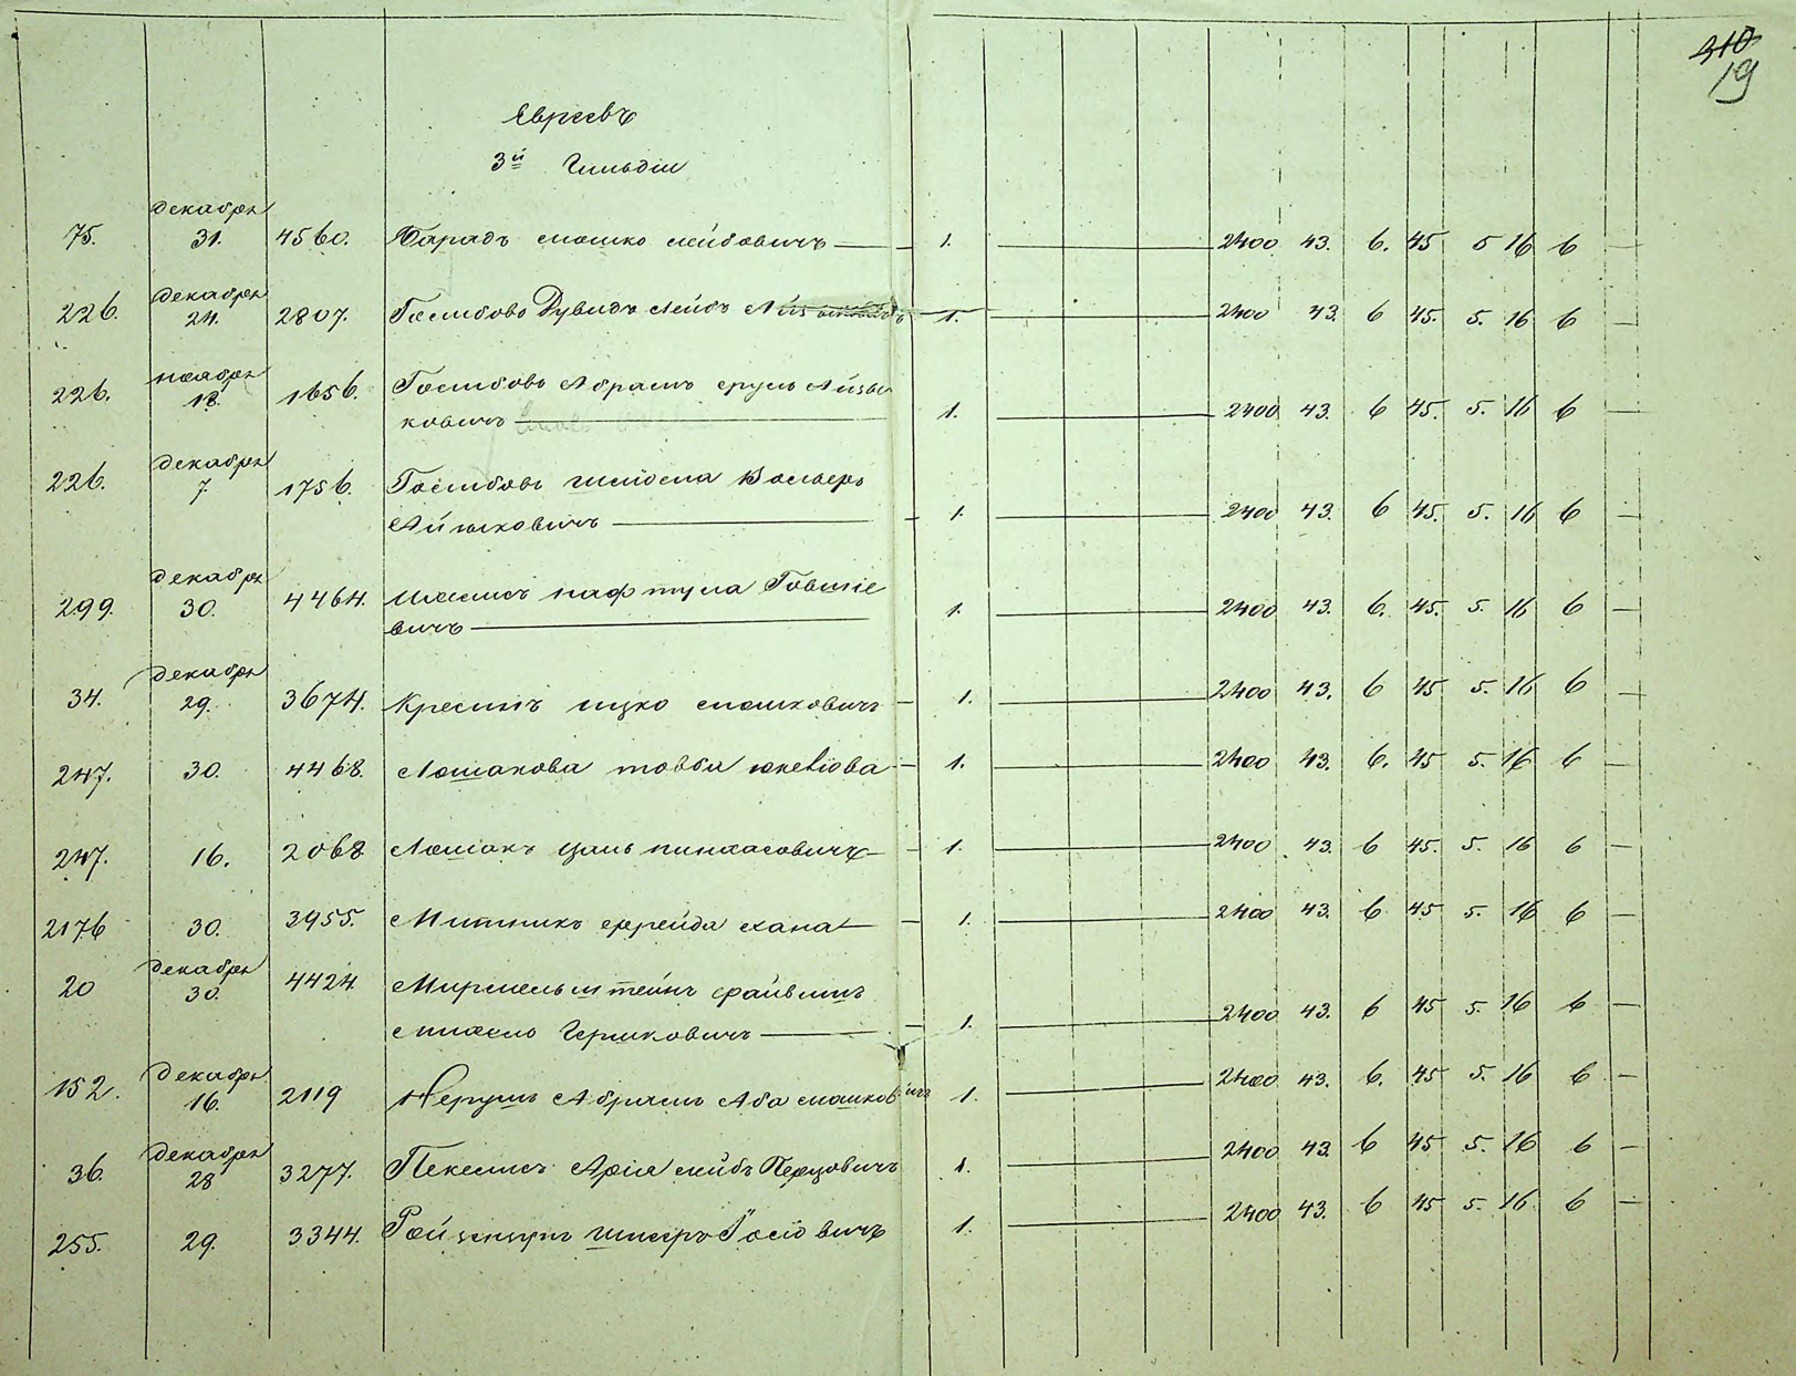 310
19
Евреевъ
3й Гильдіи
75. декабря 31. 4560. Парадъ Мошко Лейбовичъ — 1. — 2400 43. 6. 45 5 16 6 —
226. декабря 24. 2807. Голибовъ Дувидъ Лейбъ — 1. — 2400 43. 6 45. 5. 16 6 —
226. ноября 18. 1656. Голибовъ Абрамъ Сруль Айзы
ковичъ — 1. — 2400 43. 6 45. 5. 16 6 —
226. декабря 7. 1756. Голибовъ Шліома
Айзыковичъ — 1. — 2400 43. 6 45. 5. 16 6 —
299. декабря 30. 4464. Нафтула Говшіе
вичъ — 1. — 2400 43. 6. 45. 5. 16 6 —
34. декабря 29. 3674. Кресинъ Ицко Мошковичъ — 1. — 2400 43. 6 45 5. 16 6 —
247. 30. 4468. Лошакова Товба — 1. — 2400 43. 6. 45 5. 16 6 —
247. 16. 2068 Лошакъ Пинхасовичъ — 1. — 2400 43. 6 45. 5. 16 6 —
2176 30. 3955. Митникъ Фрейда Хана — 1. — 2400 43. 6 45 5. 16 6 —
20 декабря 30. 4424. Мирмельштейнъ Файвишъ
Гершковичъ — 1. — 2400 43. 6 45 5. 16 6 —
152. декабря 16. 2119 Нерушъ Абрамъ Аба Мошковичъ 1. — 2400 43. 6. 45 5. 16 6 —
36. декабря 28 3277. Пекелисъ Арія Лейбъ Перцовичъ 1. — 2400 43. 6 45 5. 16 6 —
255. 29. 3344. Шмеръ 1. — 2400 43. 6 45 5. 16 6 —